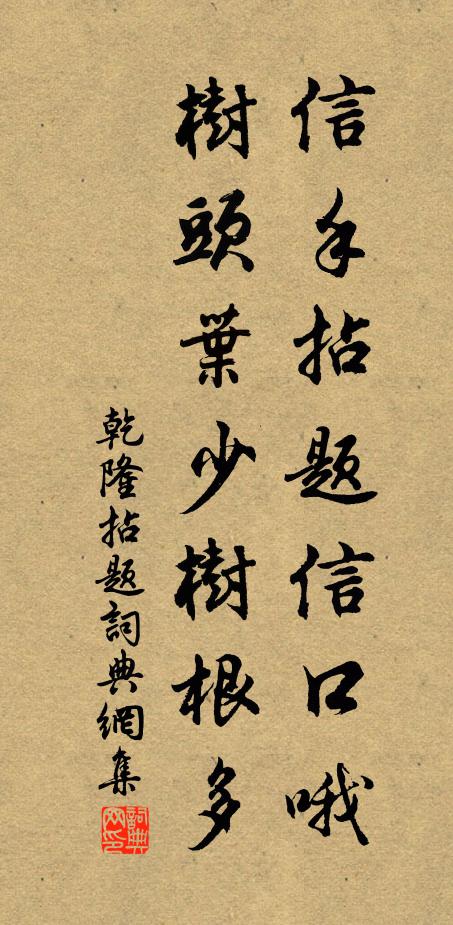 信手拈题信口哦
樹頭葉少樹根多
乾隆拈题詞典網集
詞典网印